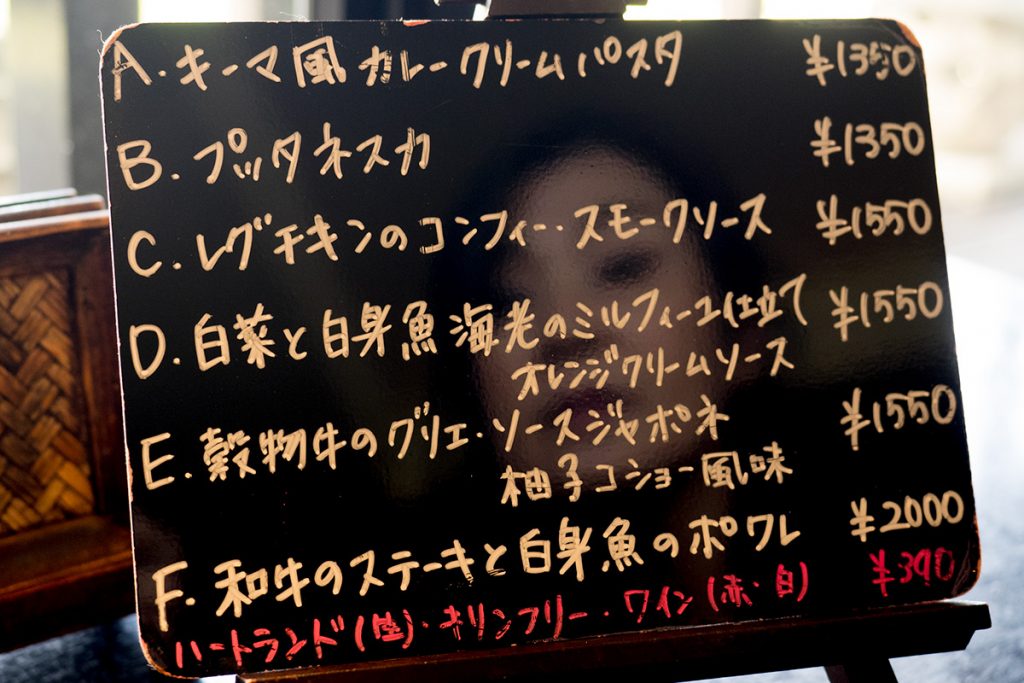 A. キーマ風カレークリームパスタ ¥1350
B. プッタネスカ ¥1350
C. レグチキンのコンフィー・スモークソース ¥1550
D. 白菜と白身魚海老のミルフィーユ仕立て ¥1550
オレンジクリームソース
E. 穀物牛のグリエ・ソースジャポネ ¥1550
柚子コショー風味
F. 和牛のステーキと白身魚のポワレ ¥2000
ハートランド(生)・キリンフリー・ワイン(赤・白) ¥390